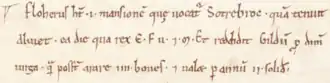 Floherus ht̄. i. mansionē que uocat͛ Sotrebroc. quā tenuit
aluiet. ea die qua rex. E. F. u. ⁊ m̄. Et reddidit gildum ꝓ dim̄
uirga. hā post̄ arare iiii. boues. ⁊ ualꝫ ꝑ annū ii. solid̄.